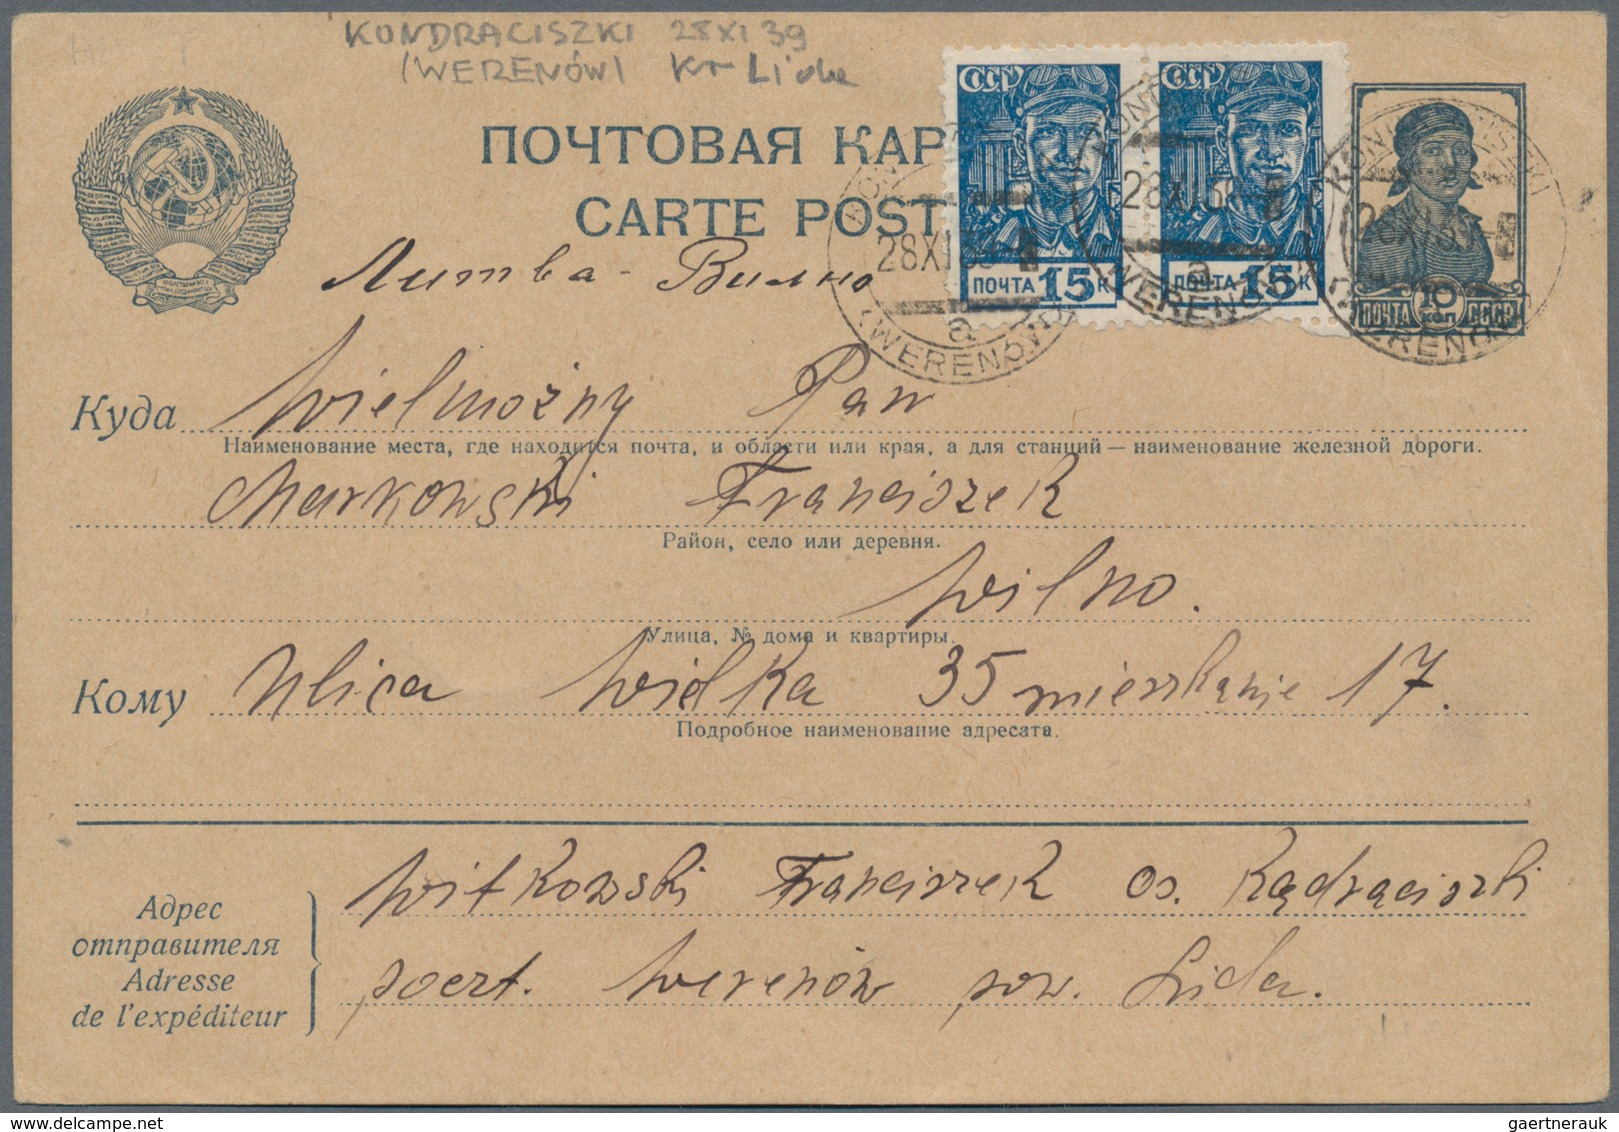 KONDRACISZKI 28 XI 39
(WERENÓW) Kr Lida
ПОЧТОВАЯ КАР
CARTE POST
Литва - Вилно
СССР
ПОЧТА 15 К
СССР
ПОЧТА 15 К
ПОЧТА 10 КОП СССР
28 XI 39
a
(WERENÓW)
28 XI 39
a
(WERENÓW)
28 XI 39
(WERENÓW)
Куда Wielmożny Pan
Наименование места, где находится почта, и области или края, а для станций — наименование железной дороги.
Markowski Franciszek
Район, село или деревня.
Wilno.
Улица, № дома и квартиры.
Кому Ulica Wielka 35 mieszkanie 17.
Подробное наименование адресата.
Адрес
отправителя
Adresse
de l'expéditeur
Witkowski Franciszek os. Kądraciszki
poczt. Werenów pow. Lida.
gaertnerauk